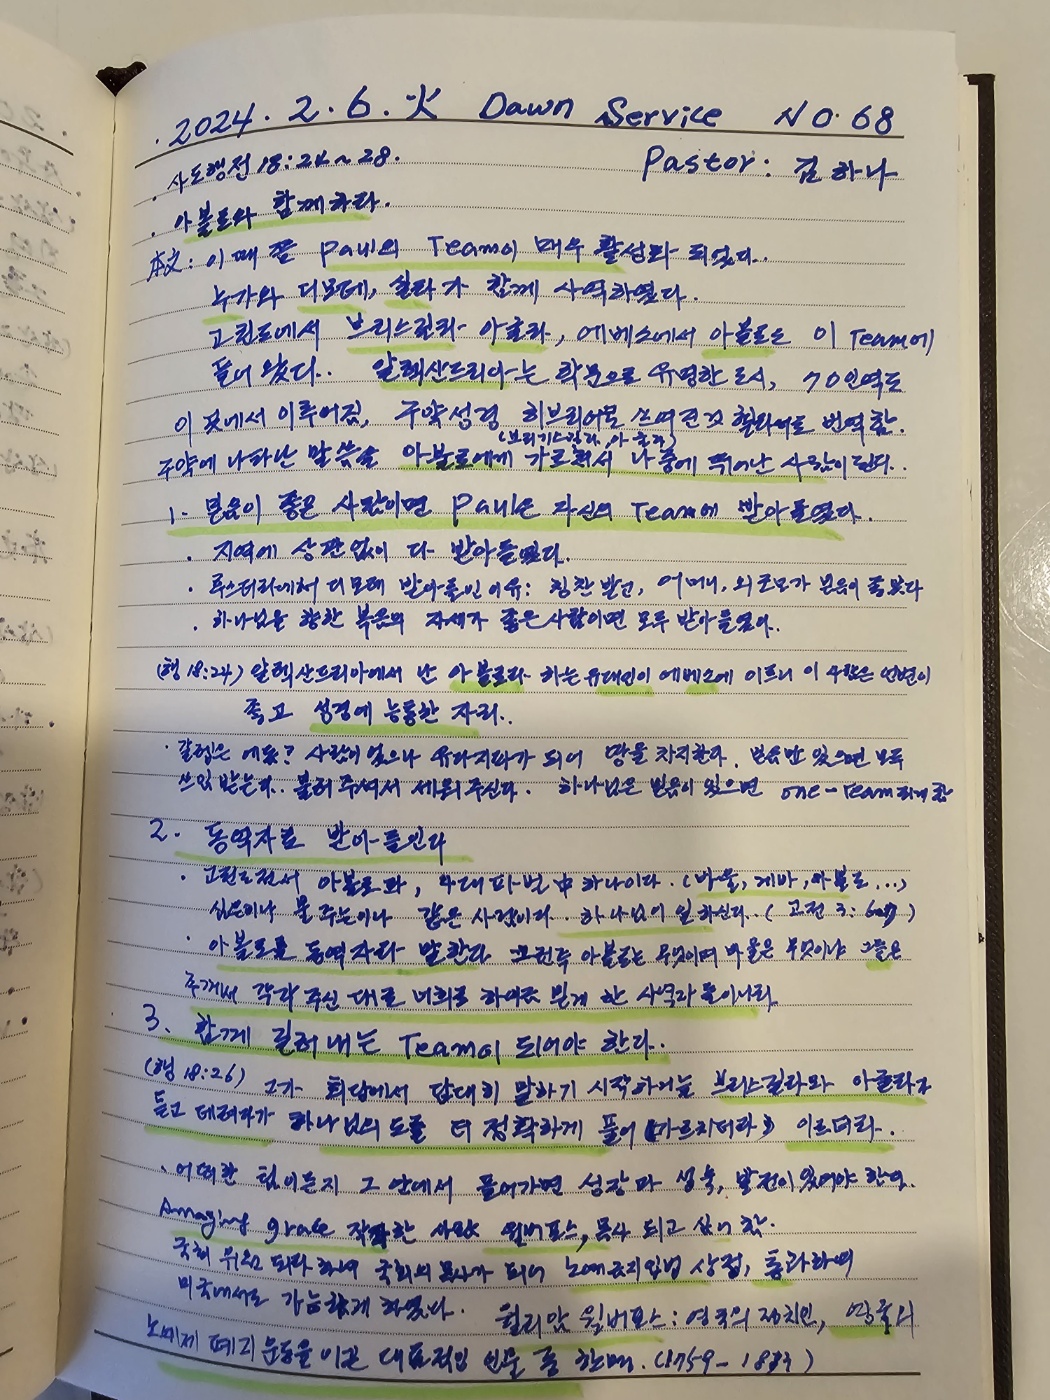 . 2024. 2. 6. 火 Dawn Service NO. 68
. 사도행전 18:24~28. Pastor: 김하나
. 아볼로와 함께하다.
本文: 이때 쯤 Paul의 Team이 매우 활성화 되었다..
누가와 디모데, 실라가 함께 사역하였다.
고린도에서 브리스길라 아굴라, 에베소에서 아볼로은 이 Team에
들어 왔다.. 알렉산드리아는 학문으로 유명한 도시, 70인역도
이 곳에서 이루어짐, 구약성경 히브리어로 쓰여진것 헬라어로 번역함.
(브리기스길라, 아굴라)
구약에 나타난 말씀을 아볼로에게 가르쳐서 나중에 뛰어난 사람이 된다..
1. 믿음이 좋은 사람이면 Paul은 자신의 Team에 받아들였다.
. 지역에 상관없이 다 받아들였다.
. 루스더라에서 디모데 받아들인 이유: 칭찬 받고, 어머니, 외조모가 믿음이 좋았다
. 하나님을 향한 복음의 자세가 좋은 사람이면 모두 받아들였다.
(행 18:24) 알렉산드리아에서 난 아볼로라 하는 유대인이 에베소에 이르니 이 사람은 언변이
좋고 성경에 능통한 자라..
. 갈렙은 에돔? 사람이었으나 유다지파가 되어 땅을 차지한다. 믿음만 있으면 모두
쓰임 받는다.. 불러주셔서 세워주신다. 하나님은 믿음이 있으면 one-team되게 함
2. 동역자로 받아들인다
. 고린도전서 아볼로파, 4대 파벌 中 하나이다. (바울, 게바, 아볼로...)
심은이나 물 주는이나 같은 사람이다.. 하나님이 일하신다.. (고전 3: )
. 아볼로를 동역자라 말한다 그런즉 아볼로는 무엇이며 바울은 무엇이냐 그들은
주께서 각각 주신 대로 너희로 하여금 믿게 한 사역자들이니라
3. 함께 길러내는 Team이 되어야 한다.
(행 18:26) 그가 회당에서 담대히 말하기 시작하거늘 브리스길라와 아굴라가
듣고 데려다가 하나님의 도를 더 정확하게 풀어 (가르치더라) 이르더라.
. 어떠한 팀이든지 그 안에서 들어가면 성장과 성숙, 발전이 있어야 한다.
Amazing grace 작곡한 사람 윌버포스, 목사 되고 싶어 함.
국회 위원 되라 하여 국회의 목사가 되어 노예금지입법 상정, 통과하여
미국에서도 가능하게 하였다. 윌리암 윌버포스: 영국의 정치인, 영국의
노예제 폐지 운동을 이끈 대표적인 인물 중 한명. (1759-1833)